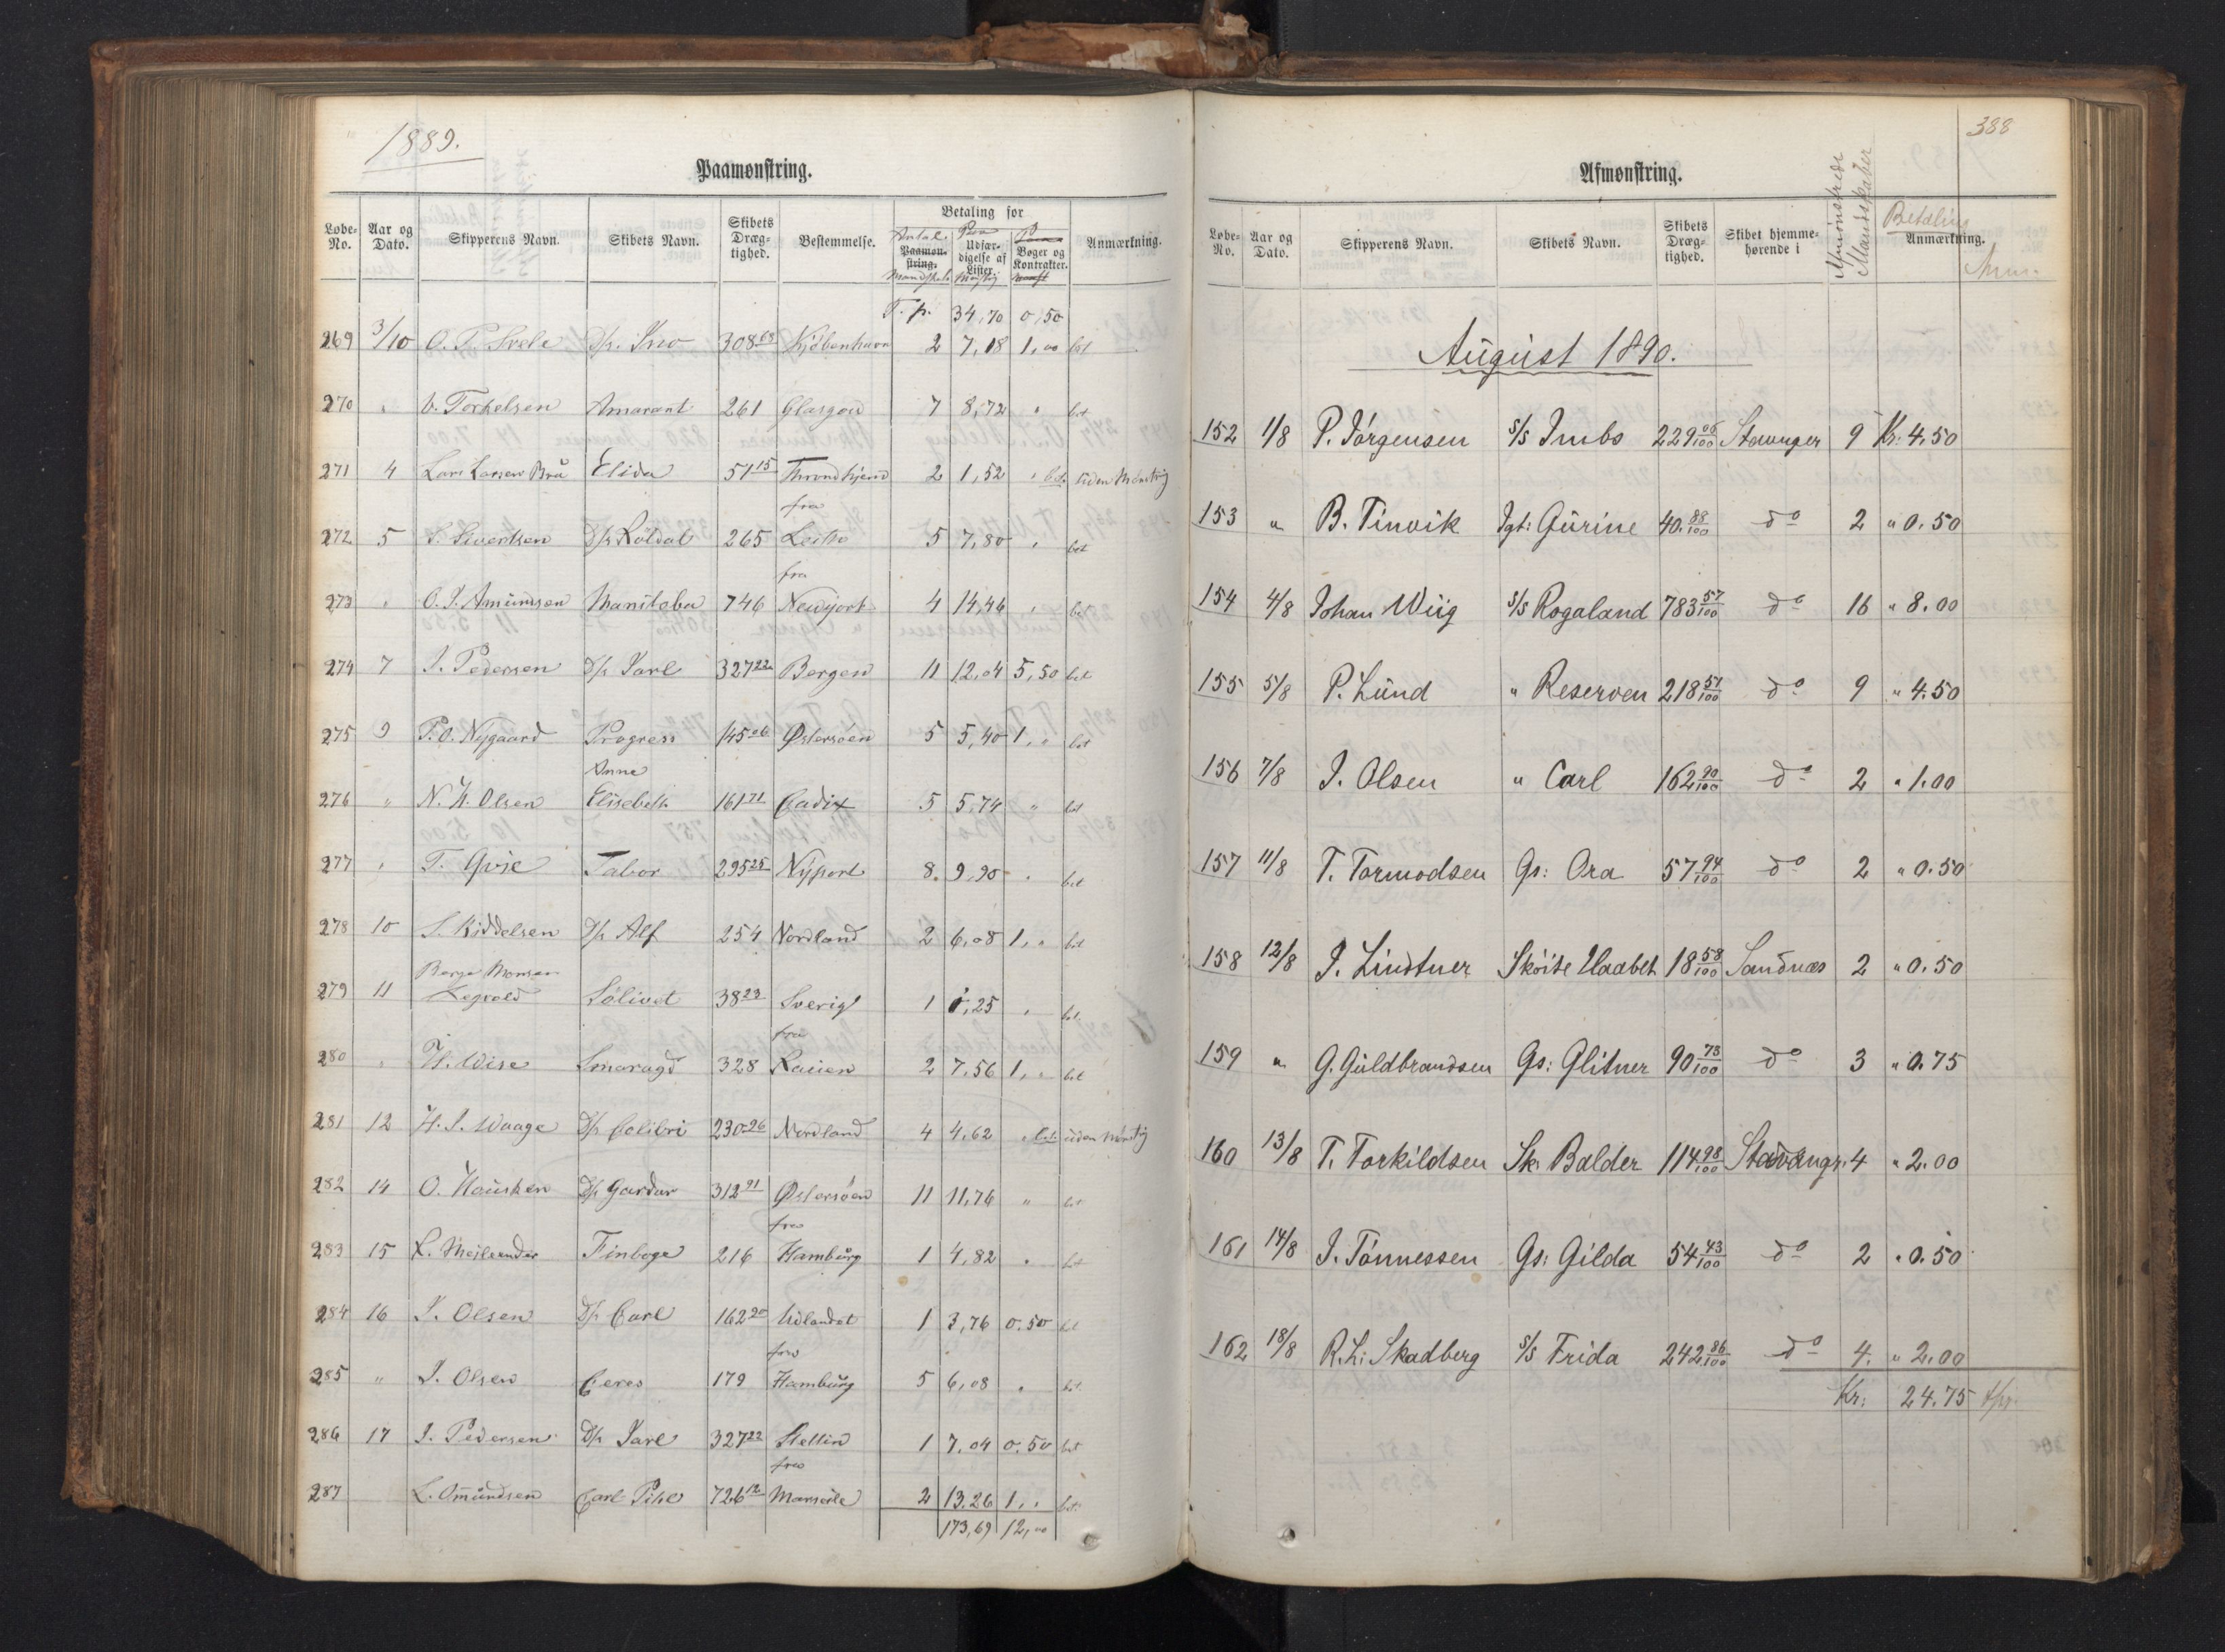 1889.
Paamønstring.
Løbe-No. Aar og Dato. Skipperens Navn. Skibets Navn. Skibets Dræg-tighed. Bestemmelse. Betaling for Anmærkning.
Antal Paamøn-string. Mandskab Udfær-digelse af Lister Bøger og Kontrakter.
T. p. 34,70 0,50
269 3/10 O. P. Svele D/s. Juno 308 63 Kjøbenhavn 2 7,18 1,00 bet
270 " V. Torkelsen Amarant 261 Glasgow 7 8,72 " bet
271 4 Lars Larsen Brå Elida 51 15 Throndhjem 2 1,52 " bet. uden Mønstrig
272 5 S. Sivertsen D/s Röldal 265 fra Leith 5 7,80 " bet
273 " O. J. Amundsen Manitoba 746 fra Newyork 4 14,46 " bet
274 7 J. Pedersen D/s Jarl 327 22 Bergen 11 12,04 5,50 bet
275 9 P. O. Nygaard Progress 145 06 Østersøen 5 5,40 1," bet
276 " N. H. Olsen Anne Elisebeth 161 71 Cadix 5 5,74 " bet
277 " T. Qvie Tabor 295 25 Nyport 8. 9,90 " bet
278 10 S. Kiddelsen D/s Alf 254 Nordland 2 6,08 1," bet
279 11 Berge Monsen Sölivet 38 23 Sverig 1 0,25 " bet.
280 " H. Wise Smaragd 328 fra 2 7,56 1," bet
281 12 H. J. Waage D/s Colibri 230 26 Nordland 4 4,62 " bet. uden Mønstrig
282 14 O. Hausken D/s Gardar 312 91 Østersøen 11 11,76 " bet
283 15 L. Finboge 216 fra Hamburg 1 4,82 " bet
284 16 J. Olsen D/s Carl 162 90 Udlandet 1 3,76 0.50 bet
285 " J. Olsen Ceres 179 fra Hamburg 5 6,08 " bet.
286 17 J. Pedersen D/s Jarl 327 22 Stettin 1 7,04 0.50 bet
287 L. Omundsen Carl Pihl 726 12 fra Marseile 2 13.26 1," bet.
173,69 12,00
388
Afmønstring.
Løbe-No. Aar og Dato. Skipperens Navn. Skibets Navn. Skibets Dræg-tighed. Skibet hjemme-hørende i Afmönstrede Mandskaber Betaling Anmærkning. Anm.
August 1890.
152 1/8 P. Jörgensen s/s Imbs 229 06/100 Stavanger 9 Kr: 4.50
153 " B. Tinvik Jgt: Gurine 40. 88/100 do 2 " 0.50
154 4/8 Johan Wiig s/s Rogaland 783 57/100 do 16 " 8.00
155 5/8 P. Lund " Reserven 218 51/100 do 9 " 4.50
156 7/8 J. Olsen " Carl 162 90/100 do 2 " 1.00
157 11/8 T. Tormodsen Gs: Ora 57 94/100 do 2 " 0.50
158 12/8 J. Lindtner Sköite Haabet 18 58/100 Sandnæs 2 " 0.50
159 " G. Guldbrandsen Gs: Glitner 90 73/100 do 3 " 0.75
160 13/8 T. Torkildsen Sk: Balder 114 98/100 Stavangr: 4 " 2.00
161 14/8 J. Tönnessen Gs: Gilda 54 43/100 do 2 " 0.50
162 18/8 R. L: Skadberg s/s Frida 242 86/100 do 4. " 2.00
Kr: 24.75